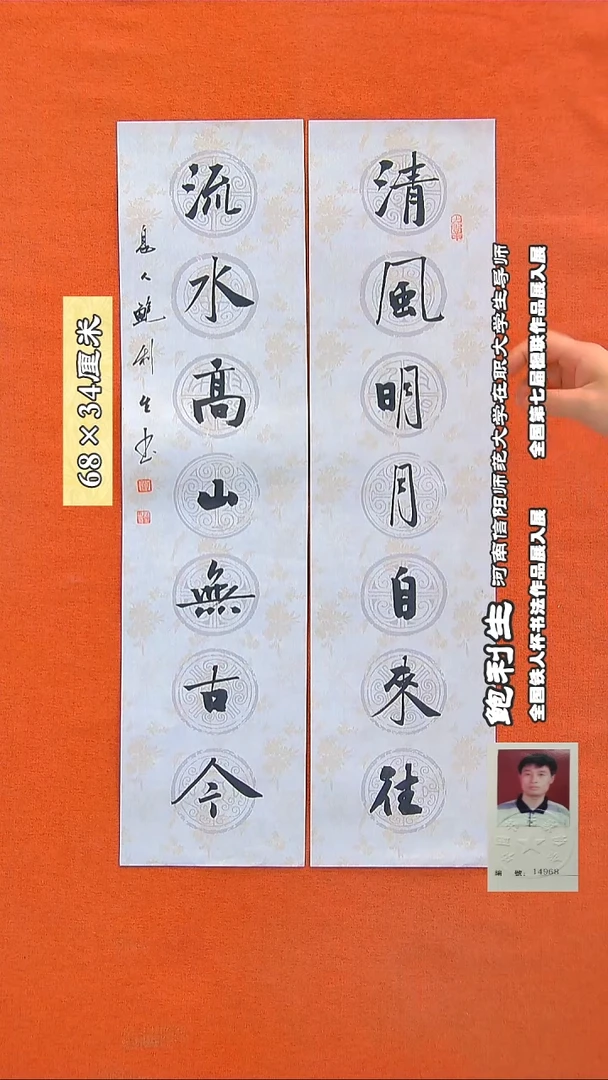 清風明月自來往
流水高山無古今
息人鲍利生书
68×34厘米
鲍利生 河南信阳师范大学在职大学生导师
全国铁人杯书法作品展入展 全国第七届楹联作品展入展
编 号: 14968